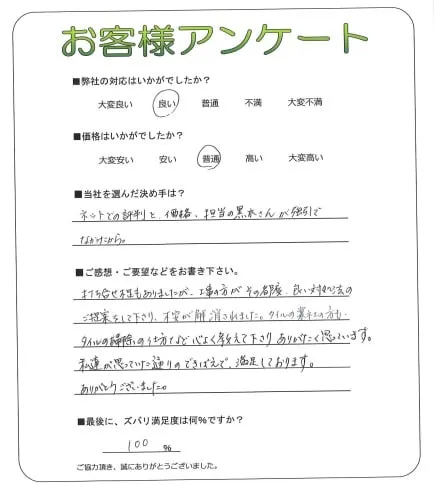 お客様アンケート
■弊社の対応はいかがでしたか？
大変良い 良い 普通 不満 大変不満
■価格はいかがでしたか？
大変安い 安い 普通 高い 大変高い
■当社を選んだ決め手は？
ネットでの評判と、価格、担当の黒水さんが強引で
なかったから。
■ご感想・ご要望などをお書き下さい。
打ち合せ不足もありましたが、工事の方がその都度、良い対処法の
ご提案をして下さり、不安が解消されました。タイルの業者の方も
タイルの掃除の仕方など心よく教えて下さりありがたく思っています。
私達が思っていた通りのできばえで、満足しております。
ありがとうございました。
■最後に、ズバリ満足度は何%ですか？
100 %
ご協力頂き、誠にありがとうございました。